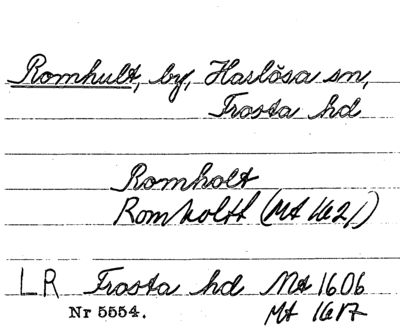 Romhult, by, Harlösa sn,
Frosta hd
Romholt
Romholtt (Mt 1621)
LR Frosta hd Mt 1606
Nr 5554. Mt 1617